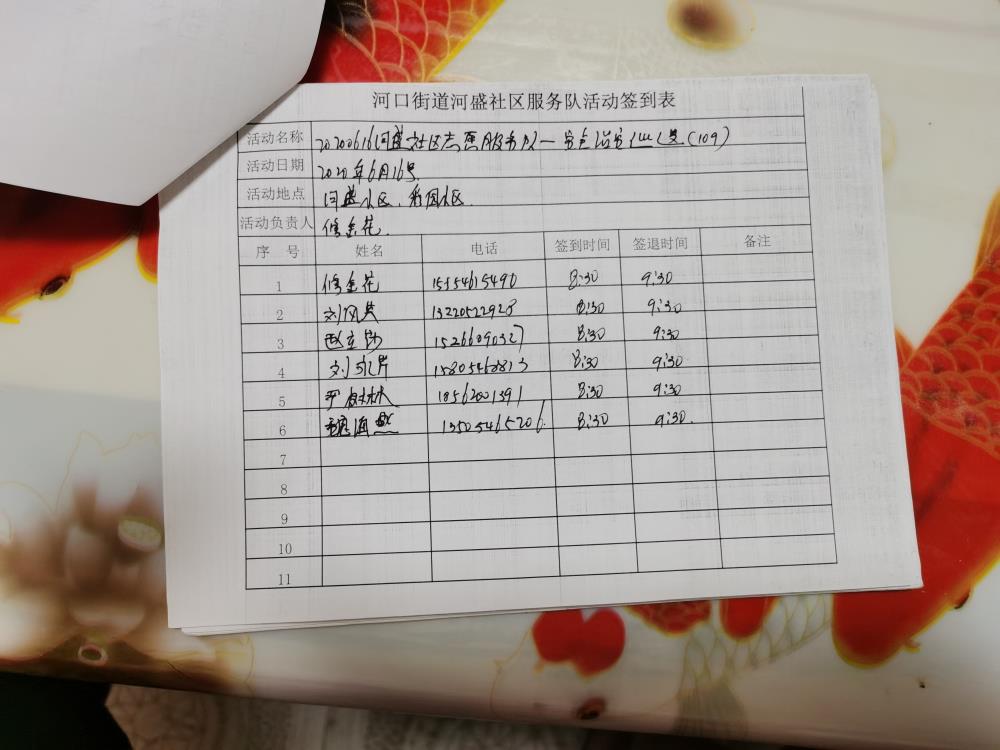 河口街道河盛社区服务队活动签到表
活动名称 20200616河盛社区志愿服务队一
活动日期 2020年6月16号
活动地点 河盛小区、小区
活动负责人 修金花
序 号 姓名 电话 签到时间 签退时间 备注
1 修金花 15154615490 8:30 9:30
2 刘风英 13220522928 8:30 9:30
3 赵立 15266090327 8:30 9:30
4 刘 15805468813 8:30 9:30
5 树林 18562001391 8:30 9:30
6 魏海燕 13505465206 8:30 9:30
7
8
9
10
11